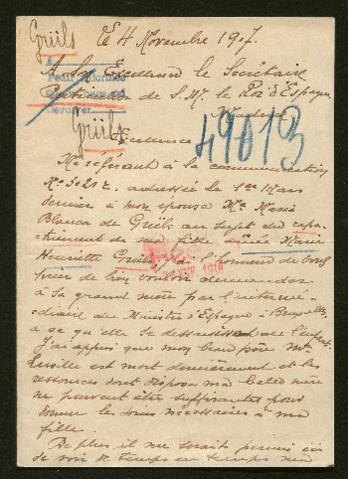 Grüls
Le 4 Novembre 1917.
A Son Excellence le Secrétaire
Particulier de S. M. le Roi d'Espagne
Madrid
Grüls
Excellence
49013
Me référant à la communication
No adressée le 1er Mars
dernier à mon épouse Mme Maria
Blanca de Grüls au sujet du rapa-
triement de ma fille ainée Marie
Henriette Grüls, j'ai l'honneur de vous
prier de bien vouloir demander
à sa grand'mère par l'intermé-
diaire du Ministre d'Espagne à Bruxelles
a ce qu'elle se dessaisisse de l'enfant.
J'ai appris que mon beau père Mr
est mort dernièrement et les
ressources dont dispose ma belle mère
ne peuvent être suffisantes pour
donner les soins nécessaires à ma
fille.
De plus il me serait permis ici
de voir de temps en temps ma